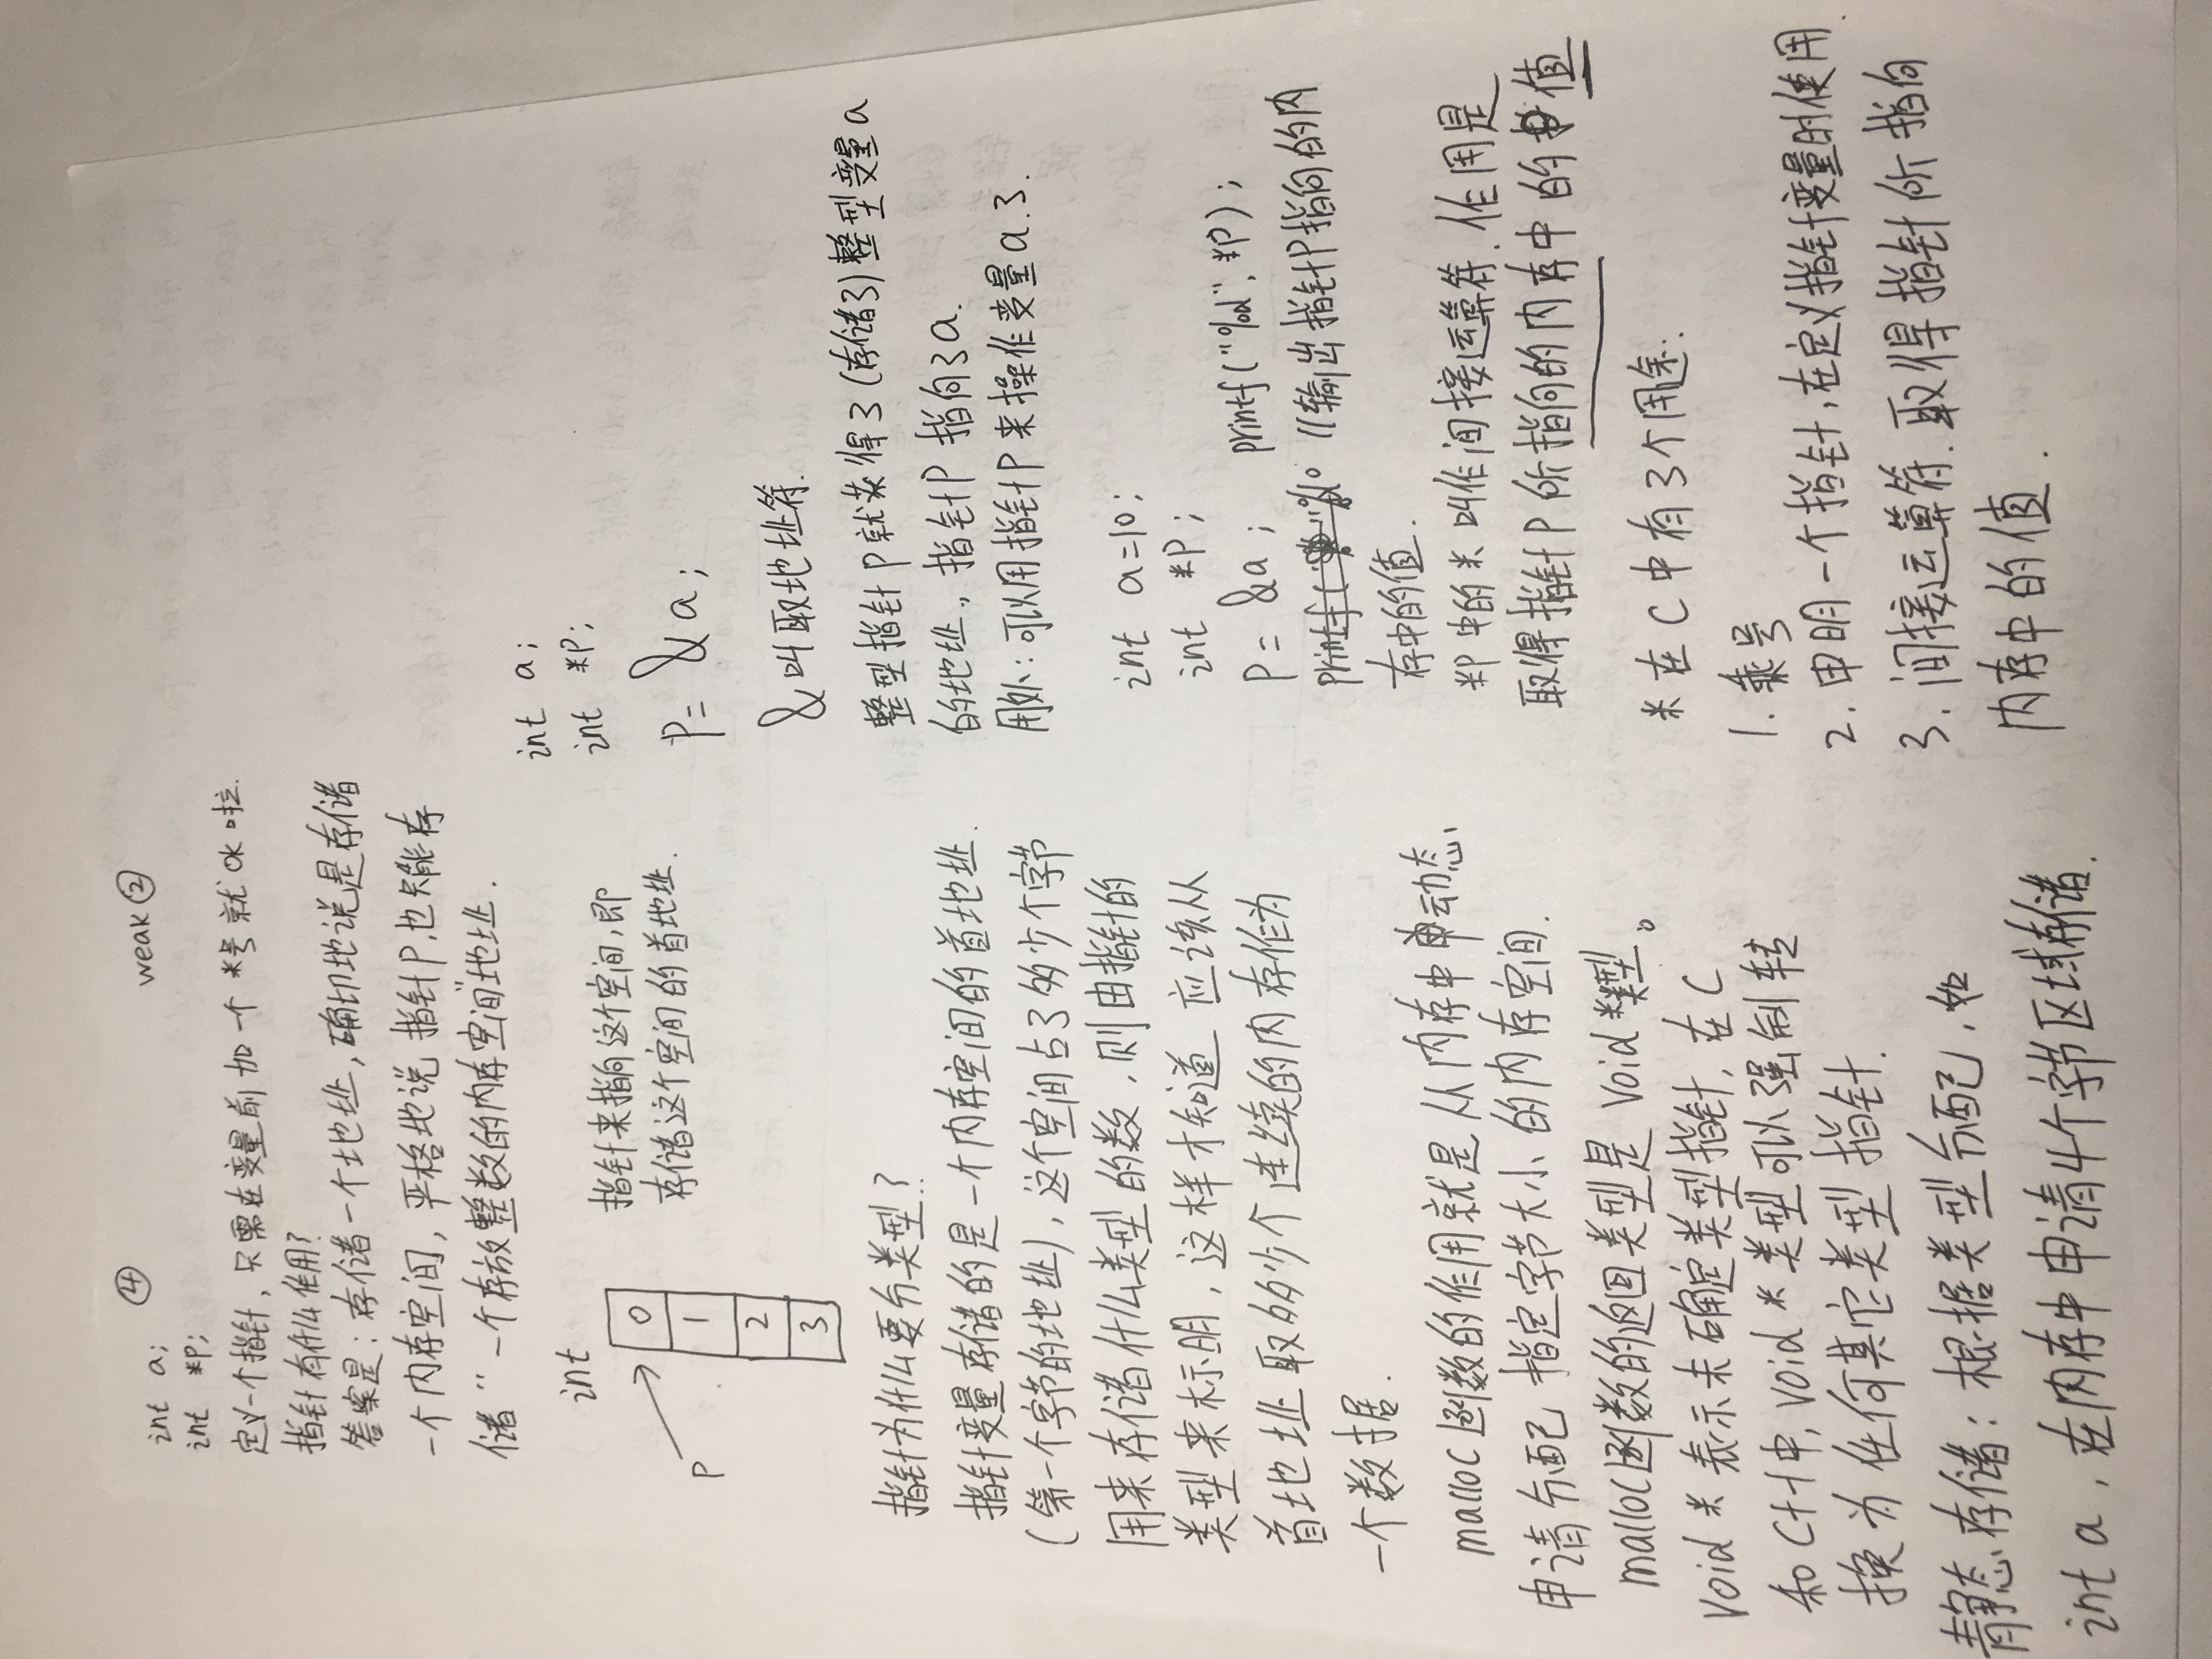 ④
weak ②
int a;
int *p;
定义一个指针,只需在变量前加一个 *号就ok啦.
指针有什么作用?
答案是:存储一个地址,确切地说是存储
一个内存空间,严格地说 指针p,也只能存
储"一个存放整数的内存空间"地址.
int
p
0
1
2
3
指针来指向这个空间,即
存储这个空间的首地址.
指针为什么要分类型?
指针变量存储的是一个内存空间的首地址.
(第一个字节的地址),这个空间占了多少个字节
用来存储什么类型的数,则由指针的
类型来标明,这样才知道 应该从
首地址取多少个连续的内存作为
一个数据.
malloc函数的作用就是从内存中动态
申请分配 指定字节大小的内存空间.
malloc函数的返回类型是 void *类型。
void * 表示未确定类型指针,在C
和C++中,void * 类型可以强制转
换为任何其它类型指针.
静态存储:根据类型分配,如
int a,在内存中申请4个字节区域存储.
int a;
int *p;
p = &a;
&叫取地址符.
整型指针p就获得了(存储了)整型变量a
的地址,指针p 指向了a.
用处:可以用指针p来操作变量a了.
int a=10;
int *p;
p = &a; printf("%d", *p);
printf( //输出指针p指向的内
存中的值.
*p中的*叫作间接运算符.作用是
取得指针p所指向的内存中的值
*在C中有3个用途:
1. 乘号
2. 申明一个指针,在定义指针变量时使用.
3. 间接运算符.取得指针所指向
内存中的值.